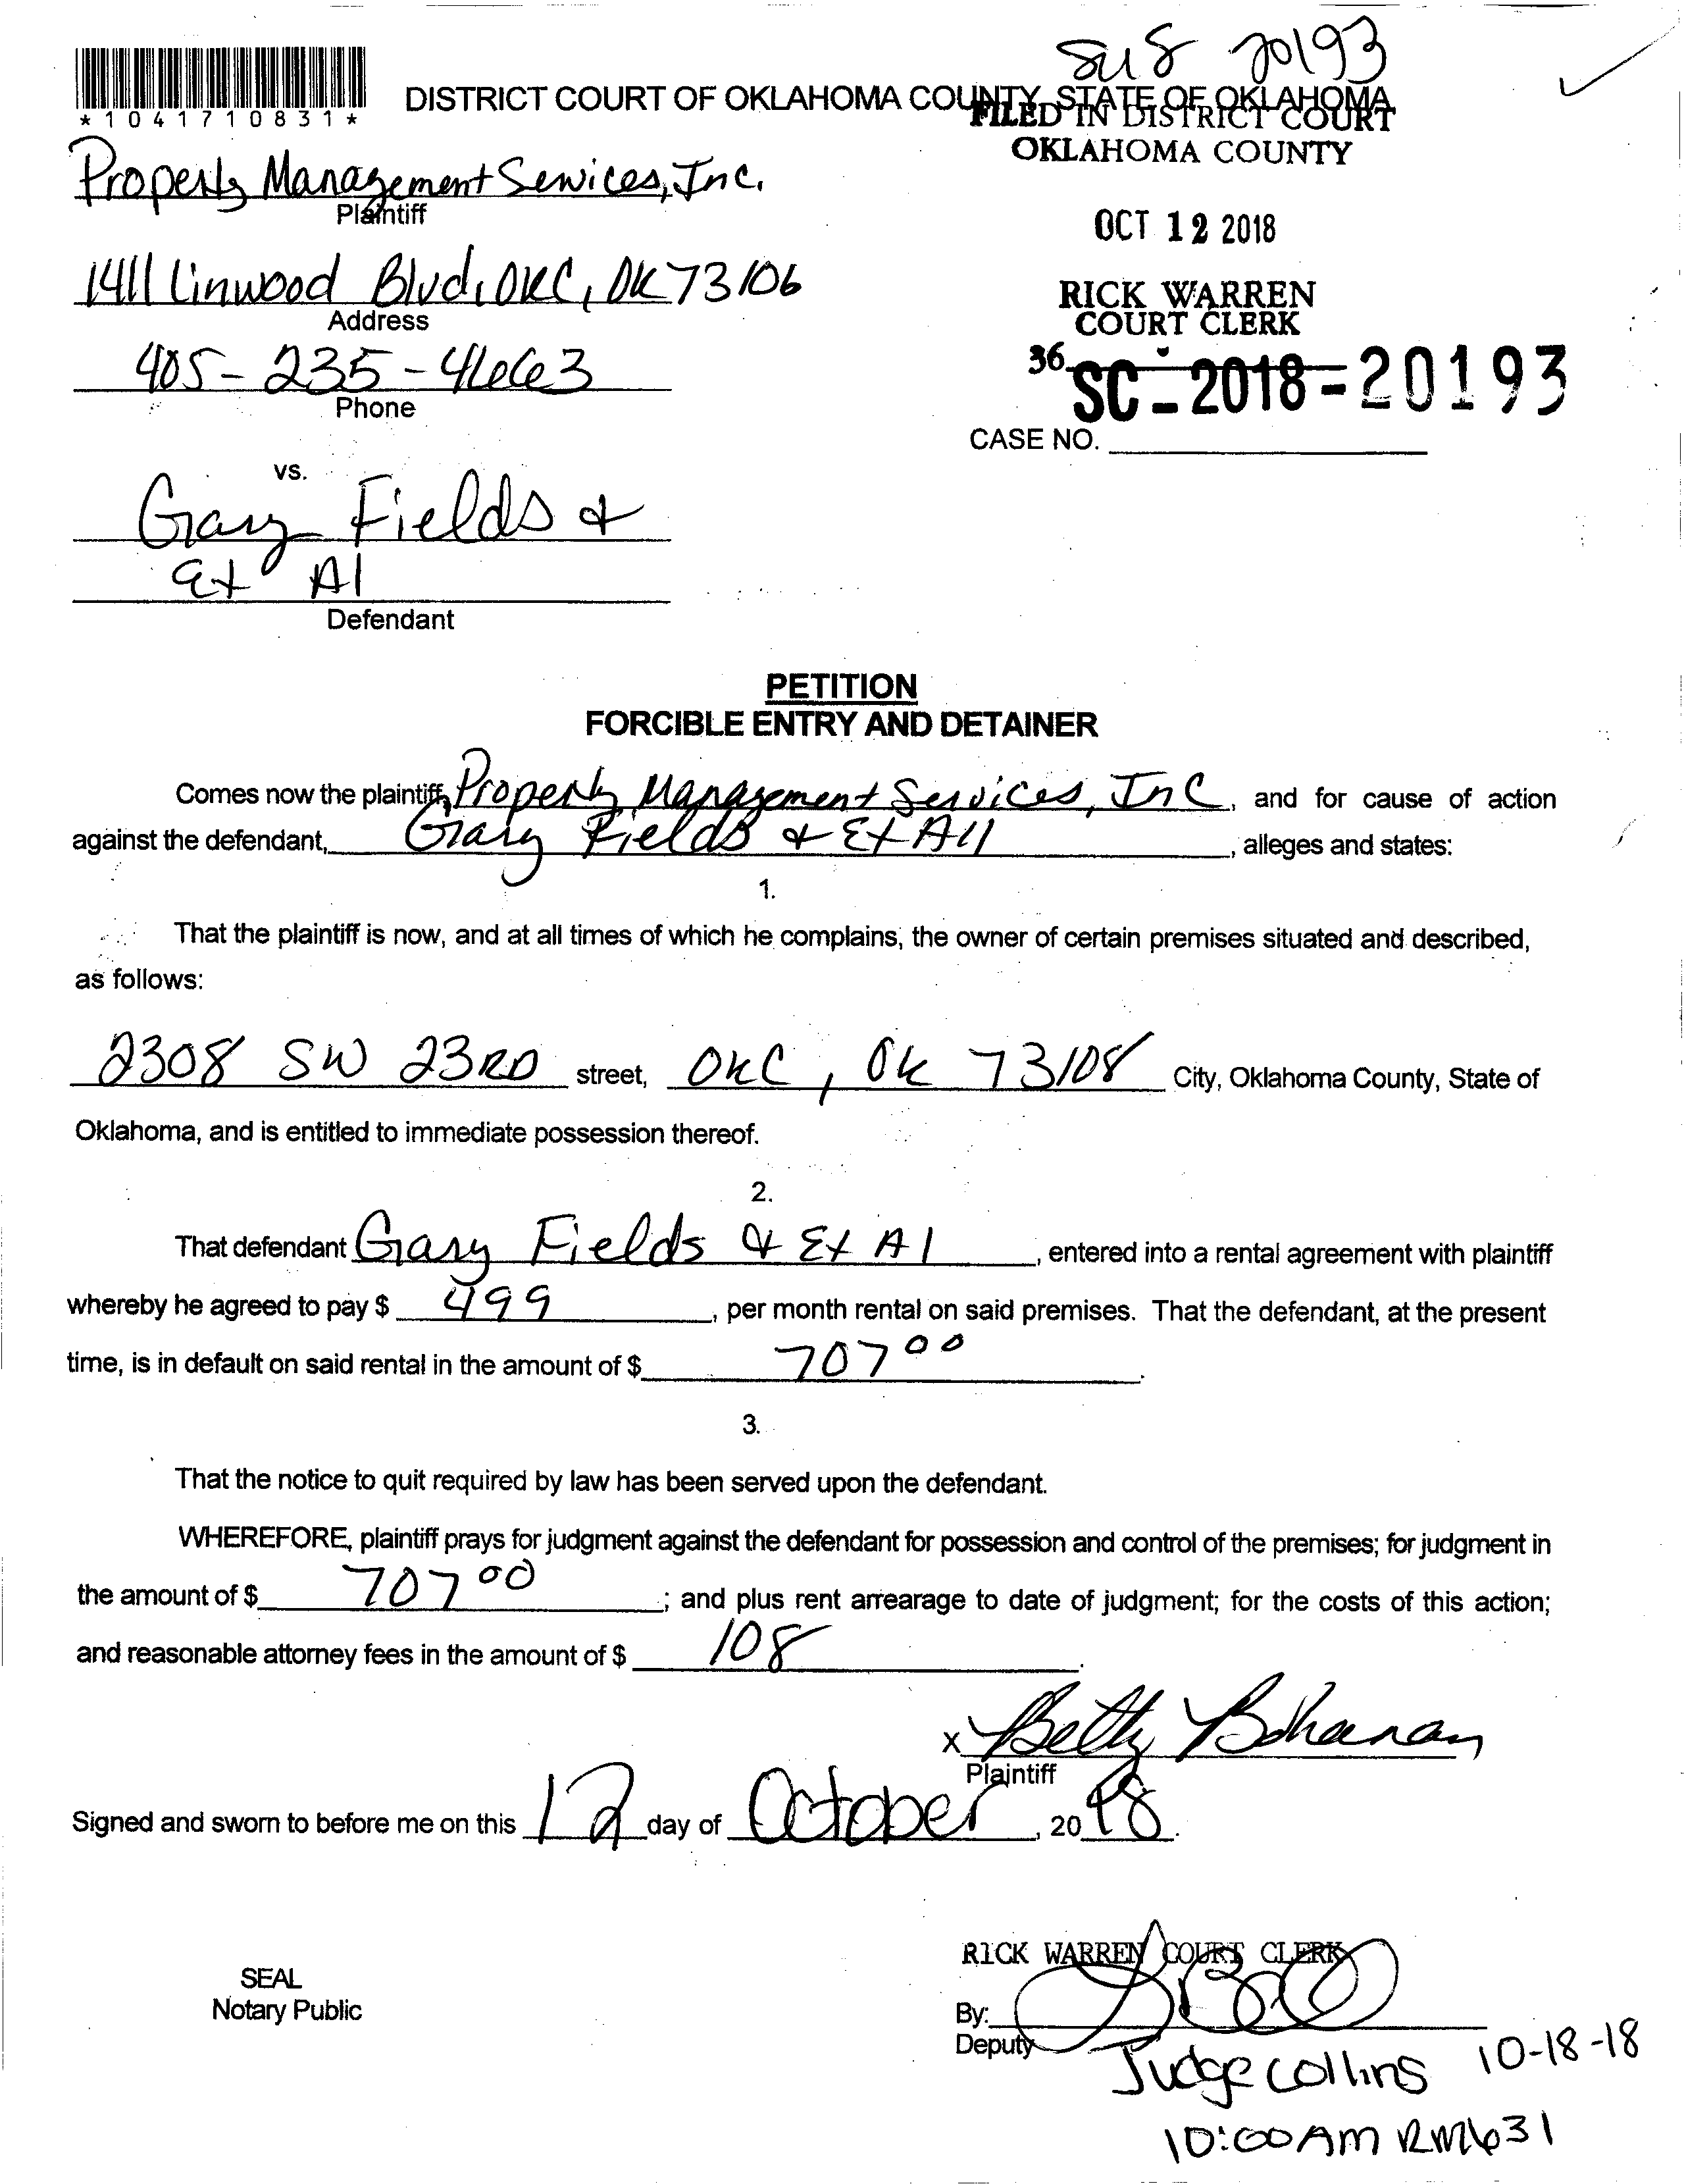 SU8 20193
*1041710831*
DISTRICT COURT OF OKLAHOMA COUNTY, STATE OF OKLAHOMA
FILED IN DISTRICT COURT
OKLAHOMA COUNTY
Property Management Services, Inc.
Plaintiff
OCT 12 2018
1411 Linwood Blvd, OKC, OK 73106
Address
RICK WARREN
COURT CLERK
405-235-4663
Phone
36
SC-2018-20193
CASE NO.
vs.
Gary Fields &
Et Al
Defendant
PETITION
FORCIBLE ENTRY AND DETAINER
Comes now the plaintiff, Property Management Services, Inc, and for cause of action
against the defendant, Gary Fields & Et All, alleges and states:
1.
That the plaintiff is now, and at all times of which he complains, the owner of certain premises situated and described,
as follows:
2308 SW 23RD street, OKC, OK 73108 City, Oklahoma County, State of
Oklahoma, and is entitled to immediate possession thereof.
2.
That defendant Gary Fields & Et Al, entered into a rental agreement with plaintiff
whereby he agreed to pay $ 499, per month rental on said premises. That the defendant, at the present
time, is in default on said rental in the amount of $ 707 00.
3.
That the notice to quit required by law has been served upon the defendant.
WHEREFORE, plaintiff prays for judgment against the defendant for possession and control of the premises; for judgment in
the amount of $ 707 00; and plus rent arrearage to date of judgment; for the costs of this action;
and reasonable attorney fees in the amount of $ 108.
x Betty Bohanan
Plaintiff
Signed and sworn to before me on this 12 day of October, 2018.
RICK WARREN COURT CLERK
SEAL
Notary Public
By:
Deputy
Judge Collins 10-18-18
10:00 AM RM 631